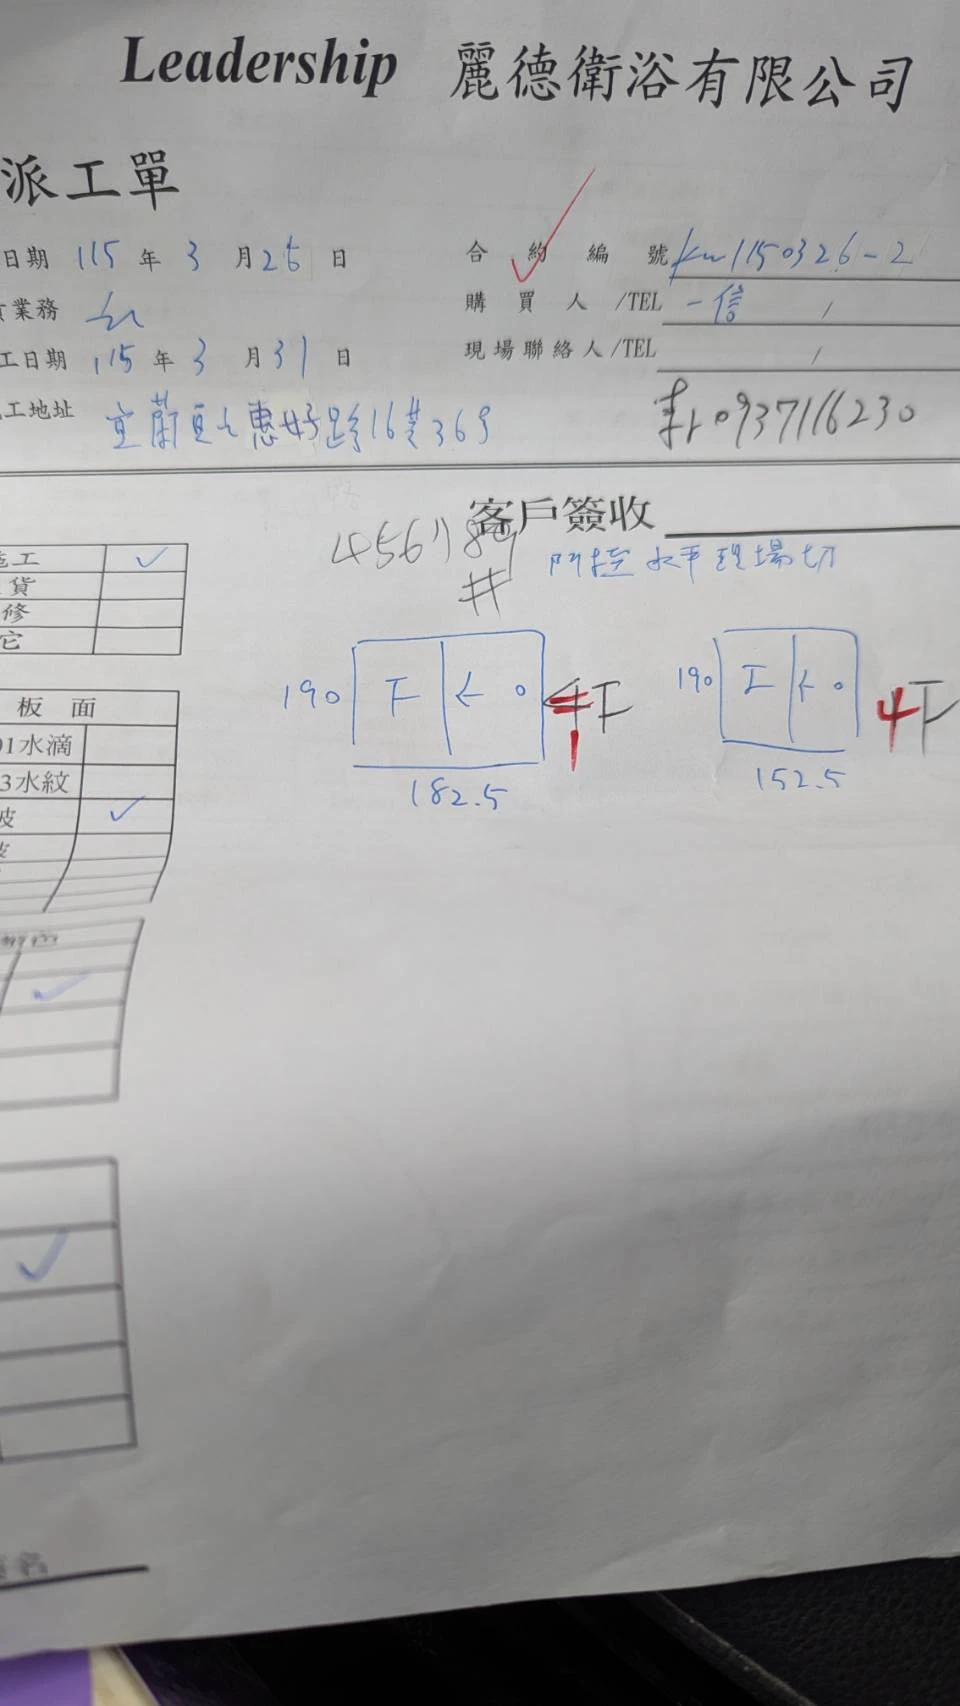 Leadership 麗德衛浴有限公司
派工單
日期 115 年 3 月 26 日
合約編號 kw1150326-2
業務
購買人/TEL 一信 /
工日期 115 年 3 月 31 日
現場聯絡人/TEL /
工地址 宜蘭 惠好路16 36號
0937116230
客戶簽收
456789
#
水平現場切
施工 ✓
貨
修
它
板面
01水滴
3水紋
波 ✓
190 F ← 182.5
4F
1
190 ← 152.5
4F